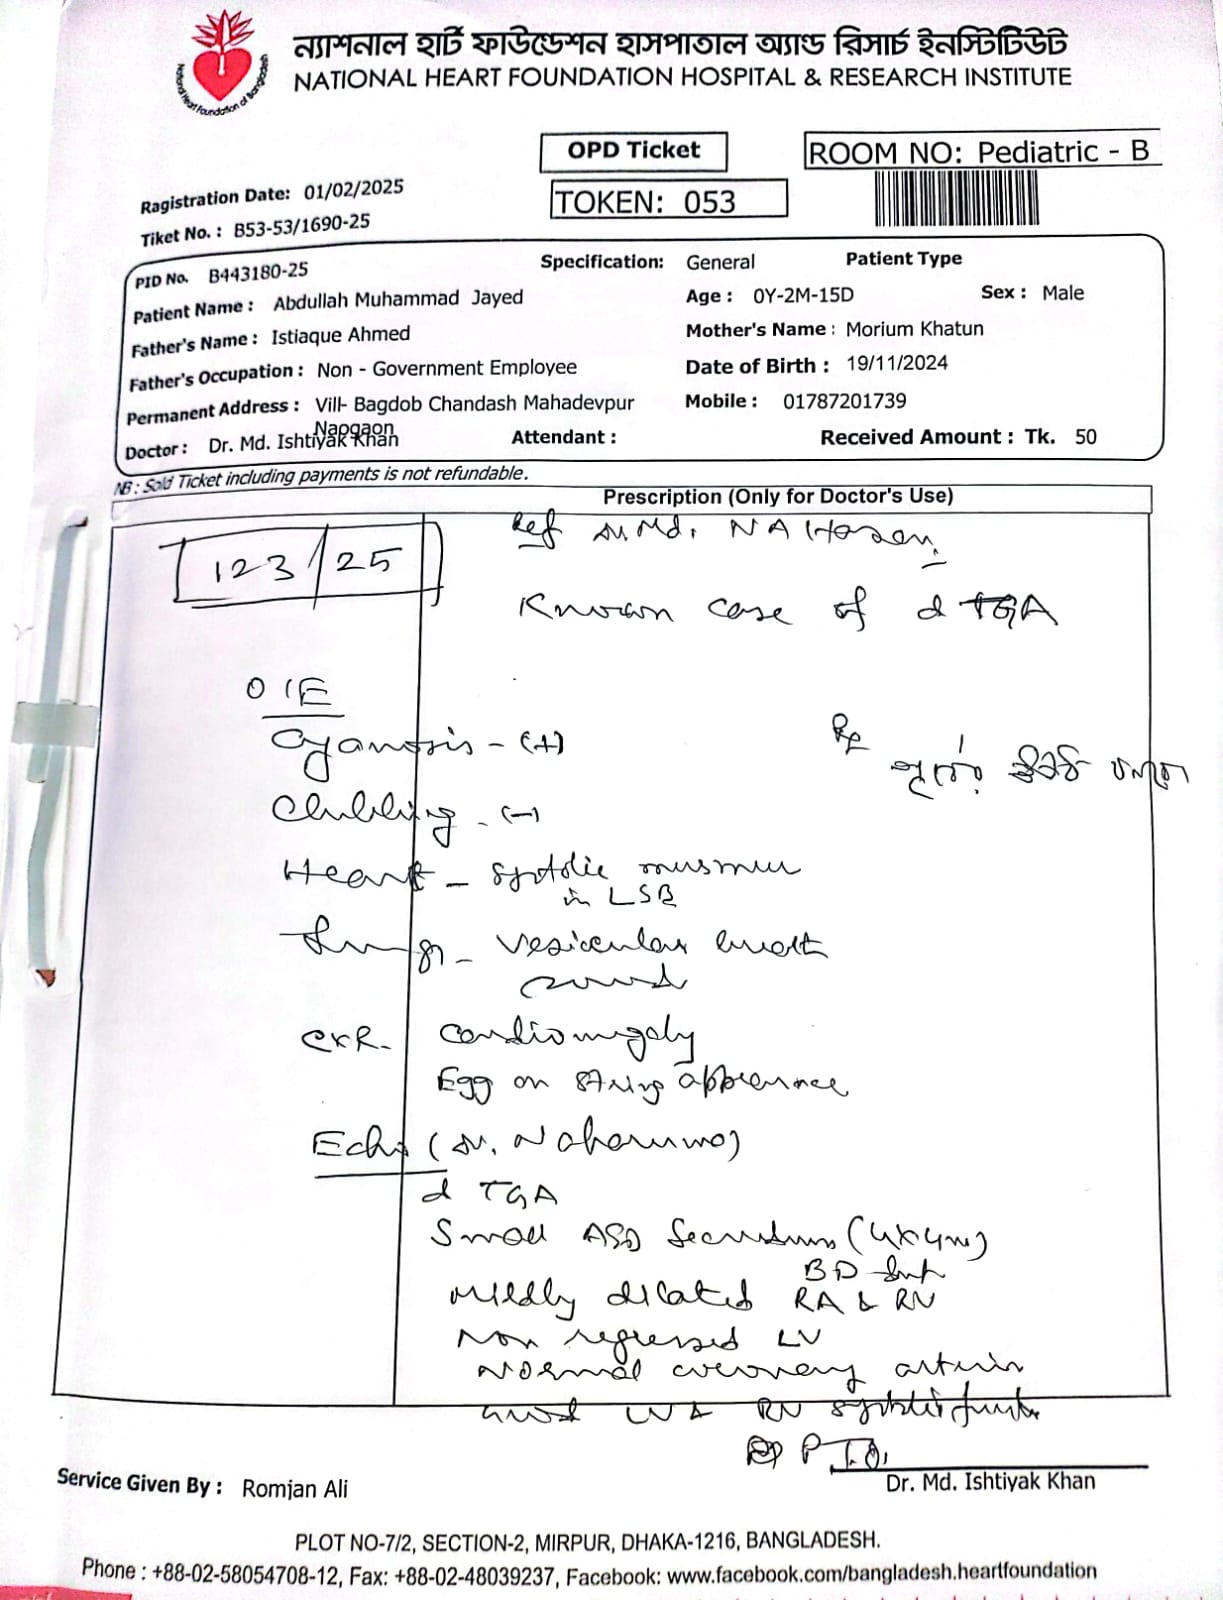 ন্যাশনাল হার্ট ফাউন্ডেশন হাসপাতাল অ্যান্ড রিসার্চ ইনস্টিটিউট
NATIONAL HEART FOUNDATION HOSPITAL & RESEARCH INSTITUTE
National Heart Foundation of Bangladesh
OPD Ticket
ROOM NO: Pediatric - B
Ragistration Date: 01/02/2025
TOKEN: 053
Tiket No. : B53-53/1690-25
PID No. B443180-25
Specification: General
Patient Type
Patient Name : Abdullah Muhammad Jayed
Age : 0Y-2M-15D
Sex : Male
Father's Name : Istiaque Ahmed
Mother's Name : Morium Khatun
Father's Occupation : Non - Government Employee
Date of Birth : 19/11/2024
Permanent Address : Vill- Bagdob Chandash Mahadevpur
Naogaon
Mobile : 01787201739
Doctor : Dr. Md. Ishtiyak Khan
Attendant :
Received Amount : Tk. 50
NB : Sold Ticket including payments is not refundable.
Prescription (Only for Doctor's Use)
Ref Dr. Md. N A Hosen.
123/25
Known case of d TGA
O/E
Cyanosis - (+)
Rx
Clubbing - (-)
Heart - systolic murmur
in LSB
Lung - vesicular breath
sound
CXR - Cardiomegaly
Egg on string appearence
Echo (Dr.
d TGA
Small ASD Secundum (4x4mm)
BD
Mildly dilated RA & RV
Non regressed LV
Normal coronary arteries
Good LV & RV systolic function
P T O.
Service Given By : Romjan Ali
Dr. Md. Ishtiyak Khan
PLOT NO-7/2, SECTION-2, MIRPUR, DHAKA-1216, BANGLADESH.
Phone : +88-02-58054708-12, Fax: +88-02-48039237, Facebook: www.facebook.com/bangladesh.heartfoundation